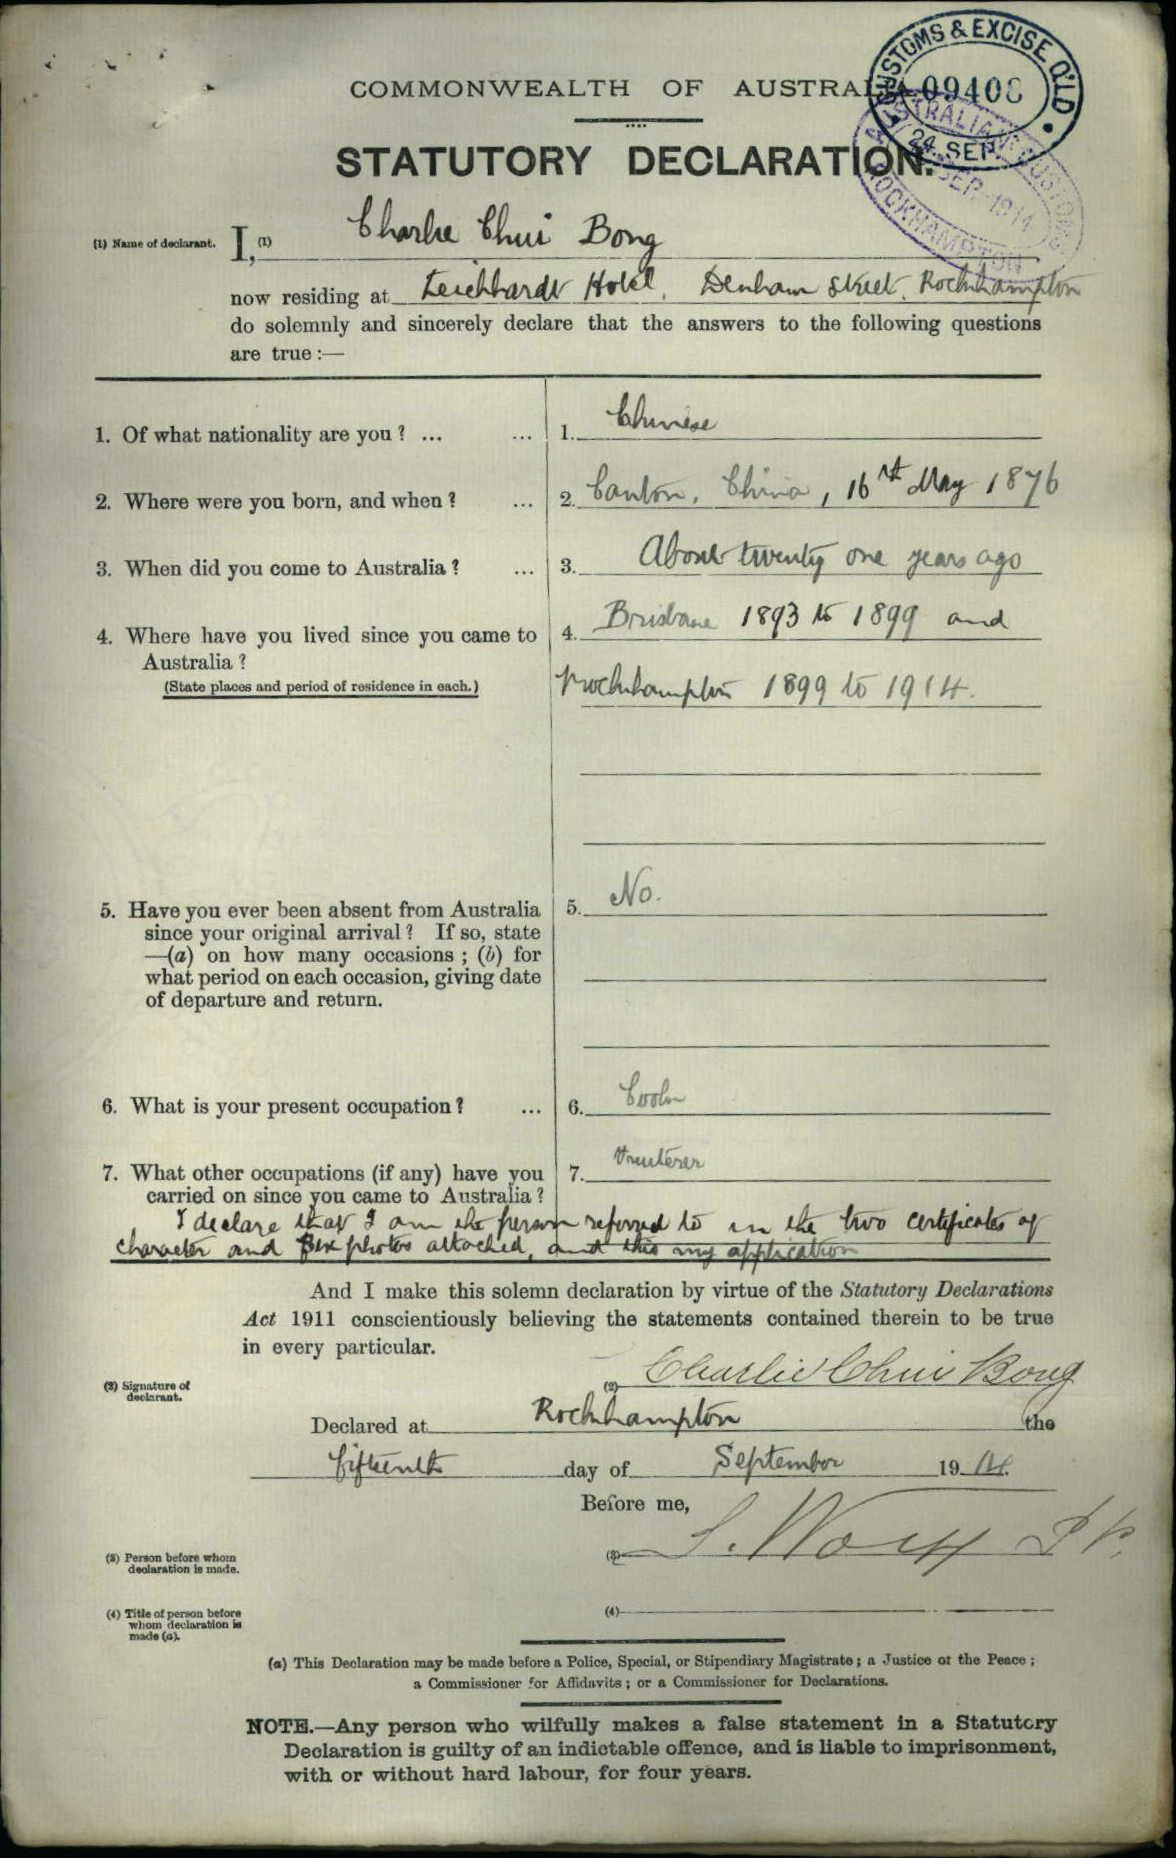 CUSTOMS & EXCISE Q'LD
09408
24 SEP.
AUSTRALIAN CUSTOMS
SEP 1914
ROCKHAMPTON
COMMONWEALTH OF AUSTRALIA
STATUTORY DECLARATION.
(1) Name of declarant. I, (1) Charlie Chui Bong
now residing at Leichhardt Hotel, Denham Street, Rockhampton
do solemnly and sincerely declare that the answers to the following questions
are true :—
1. Of what nationality are you ? ... ... 1. Chinese
2. Where were you born, and when ? ... 2. Canton, China, 16th May 1876
3. When did you come to Australia ? ... 3. About twenty one years ago
4. Where have you lived since you came to 4. Brisbane 1893 to 1899 and
Australia ?
(State places and period of residence in each.) Rockhampton 1899 to 1914.
5. Have you ever been absent from Australia 5. No.
since your original arrival ? If so, state
—(a) on how many occasions ; (b) for
what period on each occasion, giving date
of departure and return.
6. What is your present occupation ? ... 6. Cook
7. What other occupations (if any) have you 7. Fruiterer
carried on since you came to Australia ?
I declare that I am the person referred to in the two certificates of
character and six photos attached, and this my application
And I make this solemn declaration by virtue of the Statutory Declarations
Act 1911 conscientiously believing the statements contained therein to be true
in every particular.
(2) Signature of declarant. (2) Charlie Chui Bong
Declared at Rockhampton the
fifteenth day of September 19 14.
Before me,
(3) Person before whom
declaration is made. (3) J.P.
(4) Title of person before
whom declaration is
made (a). (4)
(a) This Declaration may be made before a Police, Special, or Stipendiary Magistrate ; a Justice of the Peace ;
a Commissioner for Affidavits ; or a Commissioner for Declarations.
NOTE.—Any person who wilfully makes a false statement in a Statutory
Declaration is guilty of an indictable offence, and is liable to imprisonment,
with or without hard labour, for four years.